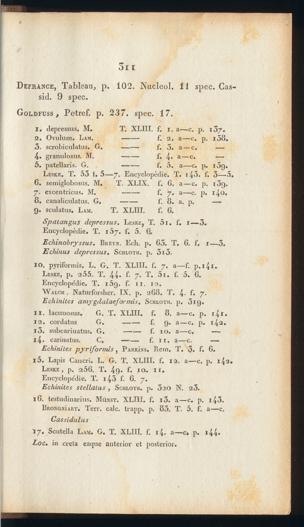 311
DEFRANCE, Tableau, p. 102. Nucleol. 11 spec. Cas-
sid. 9 spec.
GOLDFUSS, Petref. p. 237. spec. 17.
1. depressus. M. T. XLIII. f. 1. a—c. p. 137.
2. Ovulum. LAM. —— f. 2. a—c. p. 138.
3. scrobiculatus. G. —— f. 3. a—c. —
4. granulosus. M. —— f. 4. a—c. —
5. patellaris. G. —— f. 5. a—c. p. 139.
LESKE, T. 53 f. 5—7. Encyclopédie. T. 143. f. 3—5.
6. semiglobosus. M. T. XLIX. f. 6. a—c. p. 139.
7. excentricus. M. —— f. 7. a—c. p. 140.
8. canaliculatus. G. —— f. 8. a. p. —
9. scutatus, LAM. T. XLIII. f. 6.
Spatangus depressus. LESKE, T. 51. f. 1—3.
Encyclopédie. T. 157. f. 5. 6.
Echinobryssus. BREYN. Ech. p. 63. T. 6. f. 1—3.
Echinus depressus, SCHLOTH. p. 313.
10. pyriformis, L. G. T. XLIII. f. 7. a—f. p.141.
LESKE, p. 255. T. 44. f. 7. T. 51. f. 5. 6.
Encyclopédie. T. 159. f. 11. 12.
WALCH. Naturforsher. IX. p. 268. T. 4. f. 7.
Echinites amygdalaeformis, SCHLOTH. p. 319.
11. lacunosus. G. T. XLIII. f. 8. a—c. p. 141.
12. cordatus G. —— f. 9. a—c. p. 142.
13. subcarinatus. G. —— f. 10. a—c. —
14. carinatus. C. —— f. 11. a—c. —
Echinites pyriformis, PARKINS. Rem. T. 3. f. 6.
15. Lapis Cancri. L. G. T. XLIII. f. 12. a—c. p. 142.
LESKE, p. 256. T. 49. f. 10. 11.
Encyclopédie. T. 143 f. 6. 7.
Echinites stellatus, SCHLOTH. p. 320 N. 23.
16. testudinarius. MÜNST. XLIII. f. 13. a—c. p. 143.
BRONGNIART. Terr. calc. trapp. p. 83. T. 5. f. a—c.
Cassidulus
17. Scutella LAM. G. T. XLIII. f. 14. a—c. p. 144.
Loc. in creta eaque anterior et posterior.